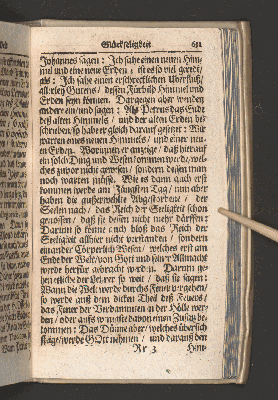 Glückseligkeit 631
Johannes sagen: Ich sahe einen neuen Him-
mel und eine neue Erden; ist es so viel geredt,
als: Ich sahe einen erschrecklichen Überfluß,
allerley Gutens, dessen Fürbild Himmel und
Erden seyn können. Dargegen aber wenden
andere ein/und sagen: Als Petrus das Ende
deß alten Himmels/ und der alten Erden be-
schrieben/so habe er gleich darauf gesetzet: Wir
warten eines neuen Himmels/ und einer neu-
en Erden. Worunter er anzeige/ daß hierauf
ein solch Ding und Wesen kommen werde/wel-
ches zuvor nicht gewesen/ sondern dessen man
noch warten müsse. Wie es dann auch erst
kommen werde am Jüngsten Tag/ nun aber
haben die außerwehlte Abgestorbene/ der
Seelen nach/ das Reich der Seeligkeit schon
genossen/ daß sie dessen nicht mehr dürffen:
Darum so könne auch bloß das Reich der
Seeligkeit allhier nicht verstanden/ sondern
ein ander Cörperlich Wesen/ welches erst am
Ende der Welt/von Gott und seiner Allmacht
werde herfür gebracht werden. Darum ge-
hen etliche der Lehrer so weit/ daß sie sagen:
Wann die Welt werde durchs Feuer vergehen/
so werde auß dem dicken Theil deß Feuers/
das Feuer der Verdammten in der Hölle wer-
den/ oder auffs wenigste davon einen Zusatz be-
kommen: Das Dünne aber/ welches übersich
steige/werde GOtt nehmen/ und darauß den
Rr 3 Him-